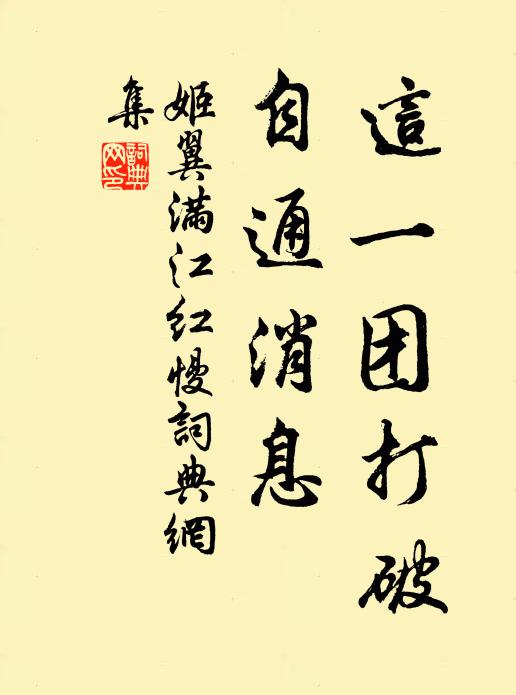 這一团打破
自通消息
姬翼满江红慢詞典網
集
詞典
网印